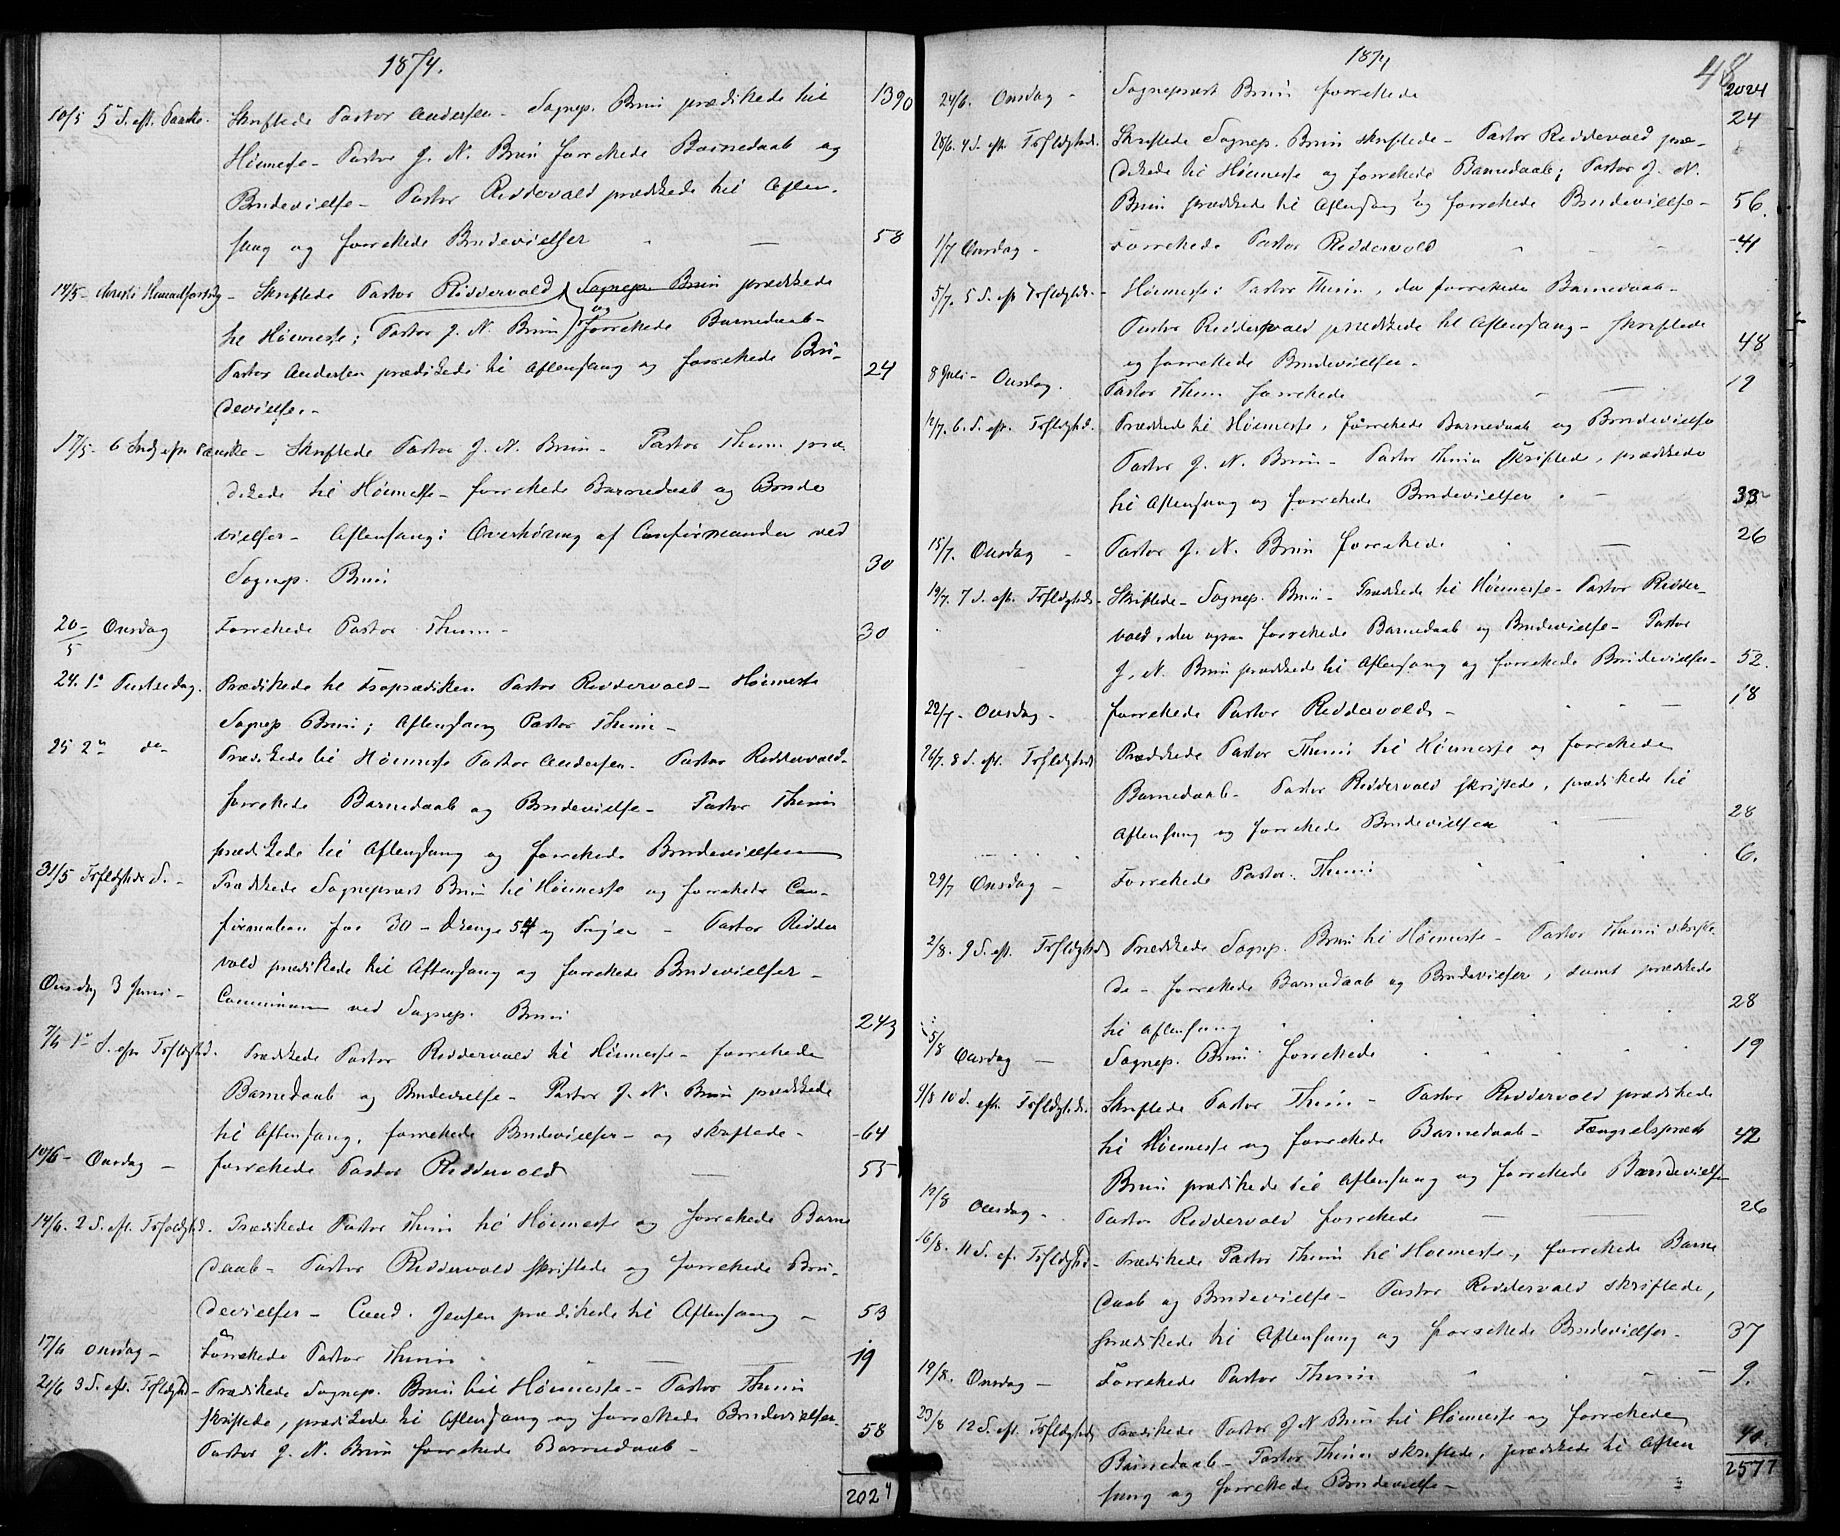 1874.
1390
10/5 5 S. eft. Paaske. Skriftede Pastor Andersen - Sognep. Brun prædikede til
Høimesse - Pastor J. N. Brun forrettede Barnedaab og
Brudevielse - Pastor Riddervold prædikede til Aften-
sang og forrettede Brudevielser - 58
14/5 - Christi Himmelfartsdag - Skriftede Pastor Riddervold Sognep. Brun prædikede
til Høimesse; Pastor J. N. Brun og forrettede Barnedaab -
Pastor Andersen prædikede til Aftensang og forrettede Bru- 24
devielse. -
17/5 - 6 Søndg eftr Paaske - Skriftede Pastor J. N. Brun - Pastor Thuun præ-
dikede til Høimesse - forrettede Barnedaab og Brude
vielser - Aftensang: Overhøring af Confirmander ved
Sognep. Brun 30
20/5 - Onsdag Forrettede Pastor Thuun - 30
24. 1e Pintsedag. Prædikede til Froprædiken Pastor Riddervold - Høimesse
Sognep Brun; Aftensang Pastor Thuun -
25 2n do Prædikede til Høimesse Pastor Andersen - Pastor Riddervold -
forrettede Barnedaab og Brudevielse - Pastor Thuun
prædikede til Aftensang og forrettede Brudevielser
31/5 Trefoldigheds S. - Prædikede Sognepræst Brun til Høimesse og forrettede Con-
firmation for 30 - Drenge 54 og Piger - Pastor Ridder
vold prædikede til Aftensang og forrettede Brudevielser -
Onsdag 3 Juni - Communion ved Sognep. Brun 243
7/6 1r S. eftr Trefoldighed. Prædikede Pastor Riddervold til Høimesse - forrettede
Barnedaab og Brudevielse - Pastor J. N. Brun prædikede
til Aftensang, forrettede Brudevielser - og skriftede - 64
10/6 - Onsdag - forrettede Pastor Riddervold - 55
14/6. 2 S. eft. Trefoldighed. Prædikede Pastor Thuun til Høimesse og forrettede Barne
daab - Pastor Riddervold skriftede og forrettede Bru-
devielser - Cand. Jensen prædikede til Aftensang - 53
17/6 Onsdag - Forrettede Pastor Thuun - 19
21/6 3 S. eft. Trefoldighed - Prædikede Sognep. Brun til Høimesse - Pastor Thuun
skriftede, prædikede til Aftensang og forrettede Brudevielser -
Pastor J. N. Brun forrettede Barnedaab - 58
2024
1874
48
2024
24/6. Onsdag - Sognepræst Brun forrettede 24
28/6. 4 S. eftr Trefoldighed. Skriftede Sognep. Brun skriftede - Pastor Riddervold præ-
dikede til Høimesse og forrettede Barnedaab; Pastor J. N.
Brun prædikede til Aftensang og forrettede Brudevielse - 56.
1/7 Onsdag - Forrettede Pastor Riddervold - 41
5/7. 5 S. eft Trefoldighed. - Høimesse: Pastor Thuun, der forrettede Barnedaab -
Pastor Riddervold prædikede til Aftensang - skriftede
og forrettede Brudevielser - 48
8 Juli - Onsdag. Pastor Thuun forrettede - 19
12/7. 6. S. eft. Trefoldighed. Prædikede til Høimesse, forrettede Barnedaab og Brudevielse
Pastor J. N. Brun - Pastor Thuun skriftede, prædikede
til Aftensang og forrettede Brudevielser - 33
15/7. Onsdag - Pastor J. N. Brun forrettede 26
19/7. 7 S. eft. Trefoldigheds - Skriftede - Sognep. Brun - Prædikede til Høimesse - Pastor Ridder-
vold, der ogsaa forrettede Barnedaab og Brudevielse - Pastor
J. N. Brun prædikede til Aftensang og forrettede Brudevielser - 52.
22/7 - Onsdag - forrettede Pastor Riddervold - 18
26/7. 8 S. eft. Trefoldighed Prædikede Pastor Thuun til Høimesse og forrettede
Barnedaab - Pastor Riddervold skriftede, prædikede til
Aftensang og forrettede Brudevielser - 28
29/7 Onsdag - Forrettede Pastor Thuun 6.
2/8. 9 S. eft. Trefoldighed Prædikede Sognep. Brun til Høimesse - Pastor Thuun skrifte-
de - forrettede Barnedaab og Brudevielser, samt prædikede
til Aftensang 28
5/8 Onsdag - Sognep. Brun forrettede 19
9/8 10 S. eft. Trefoldighed. Skriftede Pastor Thuun - Pastor Riddervold prædikede
til Høimesse og forrettede Barnedaab - Fængselspræst 42
Brun prædikede til Aftensang og forrettede Brudevielser
12/8 Onsdag - Pastor Riddervold forrettede - 26
16/8. 11 S. ef. Trefoldighed - Prædikede Pastor Thuun til Høimesse, forrettede Barne
daab og Brudevielse - Pastor Riddervold skriftede,
prædikede til Aftensang og forrettede Brudevielser - 37
19/8. Onsdag - Forrettede Pastor Thuun - 9.
23/8 12 S. eft. Trefoldighed Prædikede Pastor J. N. Brun til Høimesse og forrettede
Barnedaab - Pastor Thuun skriftede, prædikede til Aften
sang og forrettede Brudevielse -
2577